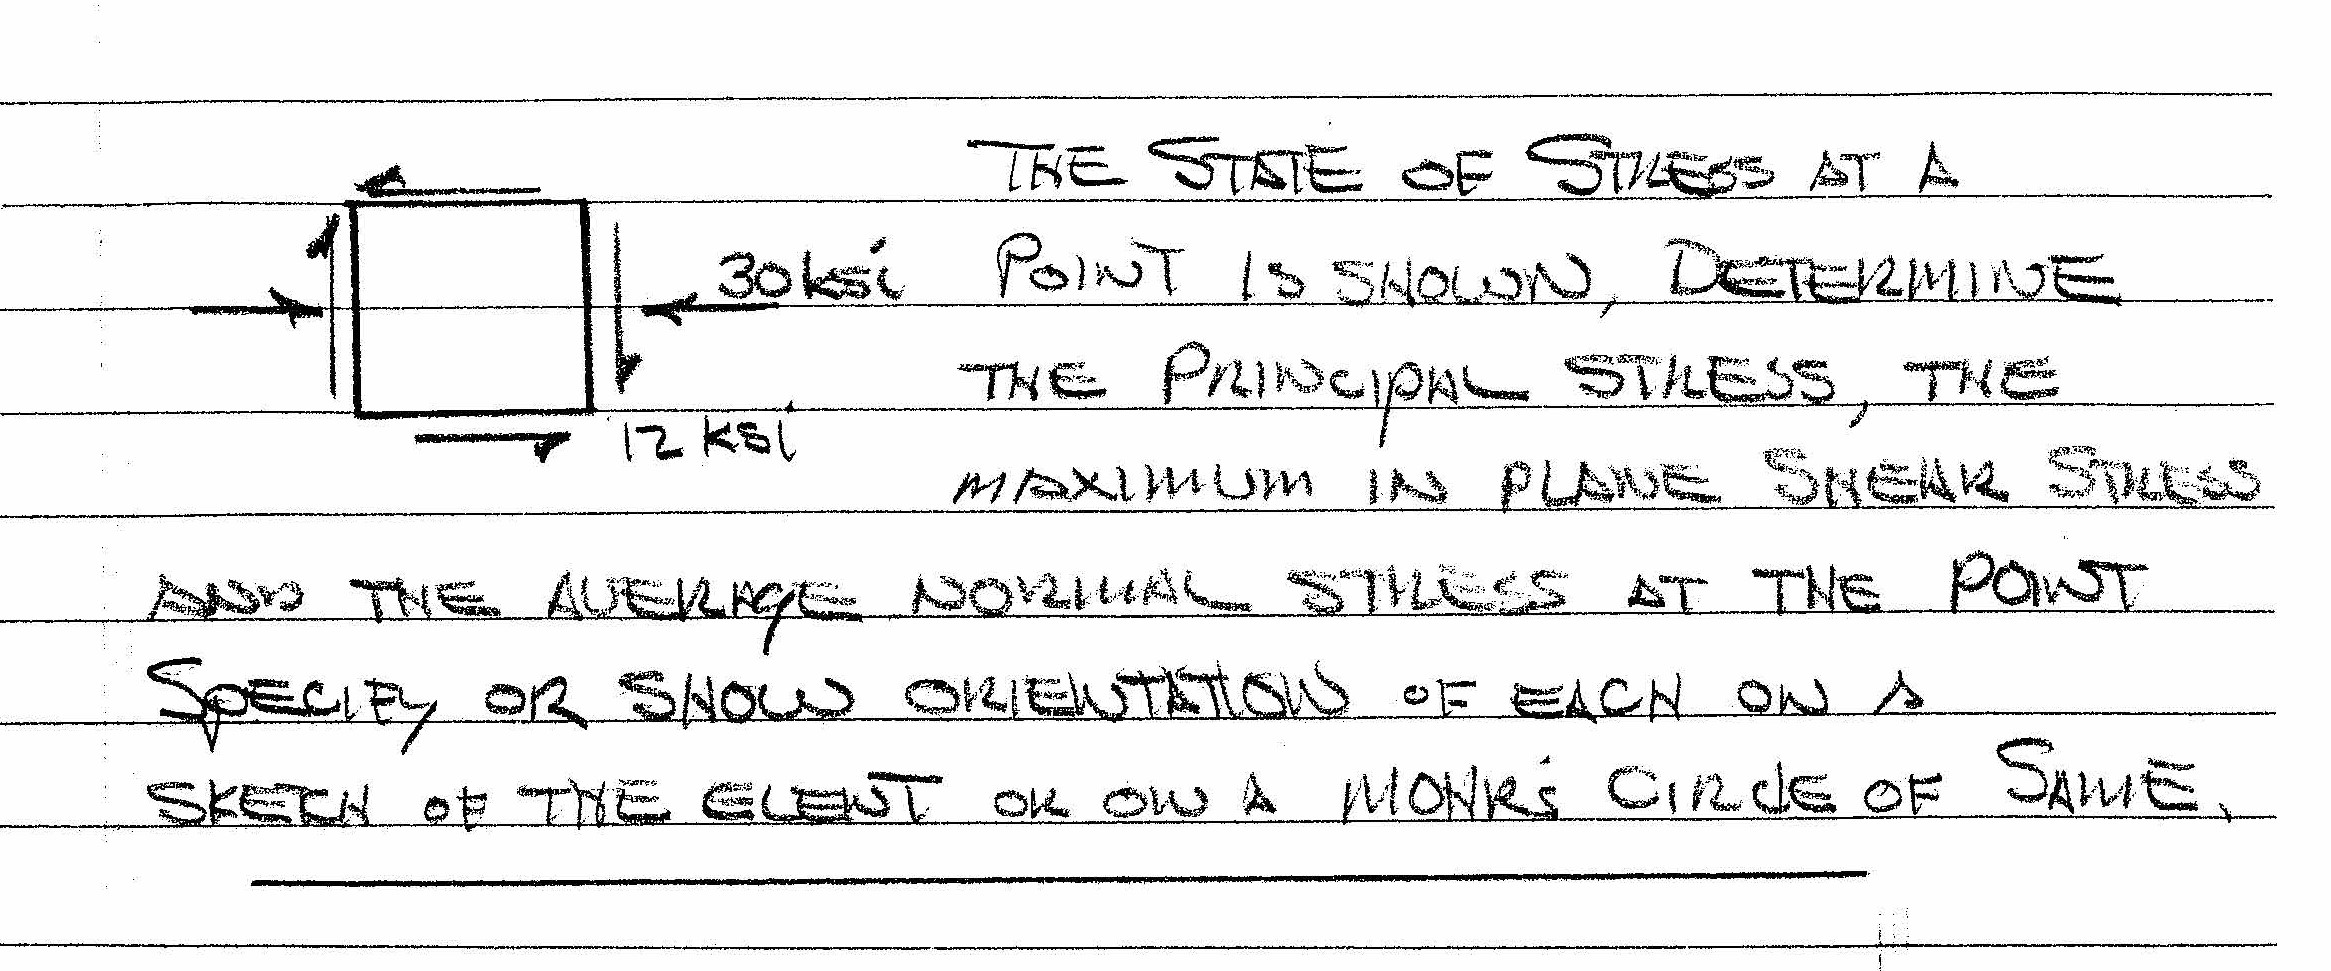 THE STATE OF STRESS AT A
30 ksi POINT IS SHOWN, DETERMINE
THE PRINCIPAL STRESS, THE
12 ksi
MAXIMUM IN PLANE SHEAR STRESS
AND THE AVERAGE NORMAL STRESS AT THE POINT
SPECIFY OR SHOW ORIENTATION OF EACH ON A
SKETCH OF THE ELEMNT OR ON A MOHR'S CIRCLE OF SAME.